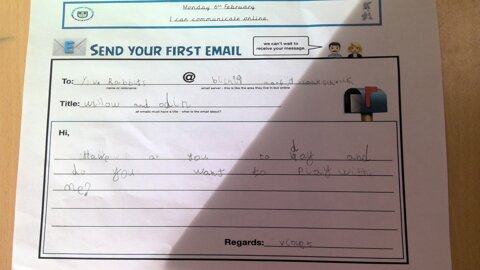 Monday 6th February
I can communicate online.
SEND YOUR FIRST EMAIL
we can't wait to
receive your message.
To: Rabbits @
name or nickname
email server - this is like the area they live in but online
Title: willow and odin
all emails must have a title - what is the email about?
Hi,
Have you to day and
do you want to play with
me?
Regards: